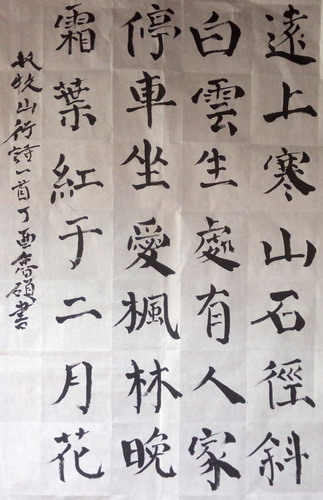 遠上寒山石徑斜
白雲生處有人家
停車坐愛楓林晚
霜葉紅于二月花
杜牧山行詩一首丁酉魯碩書